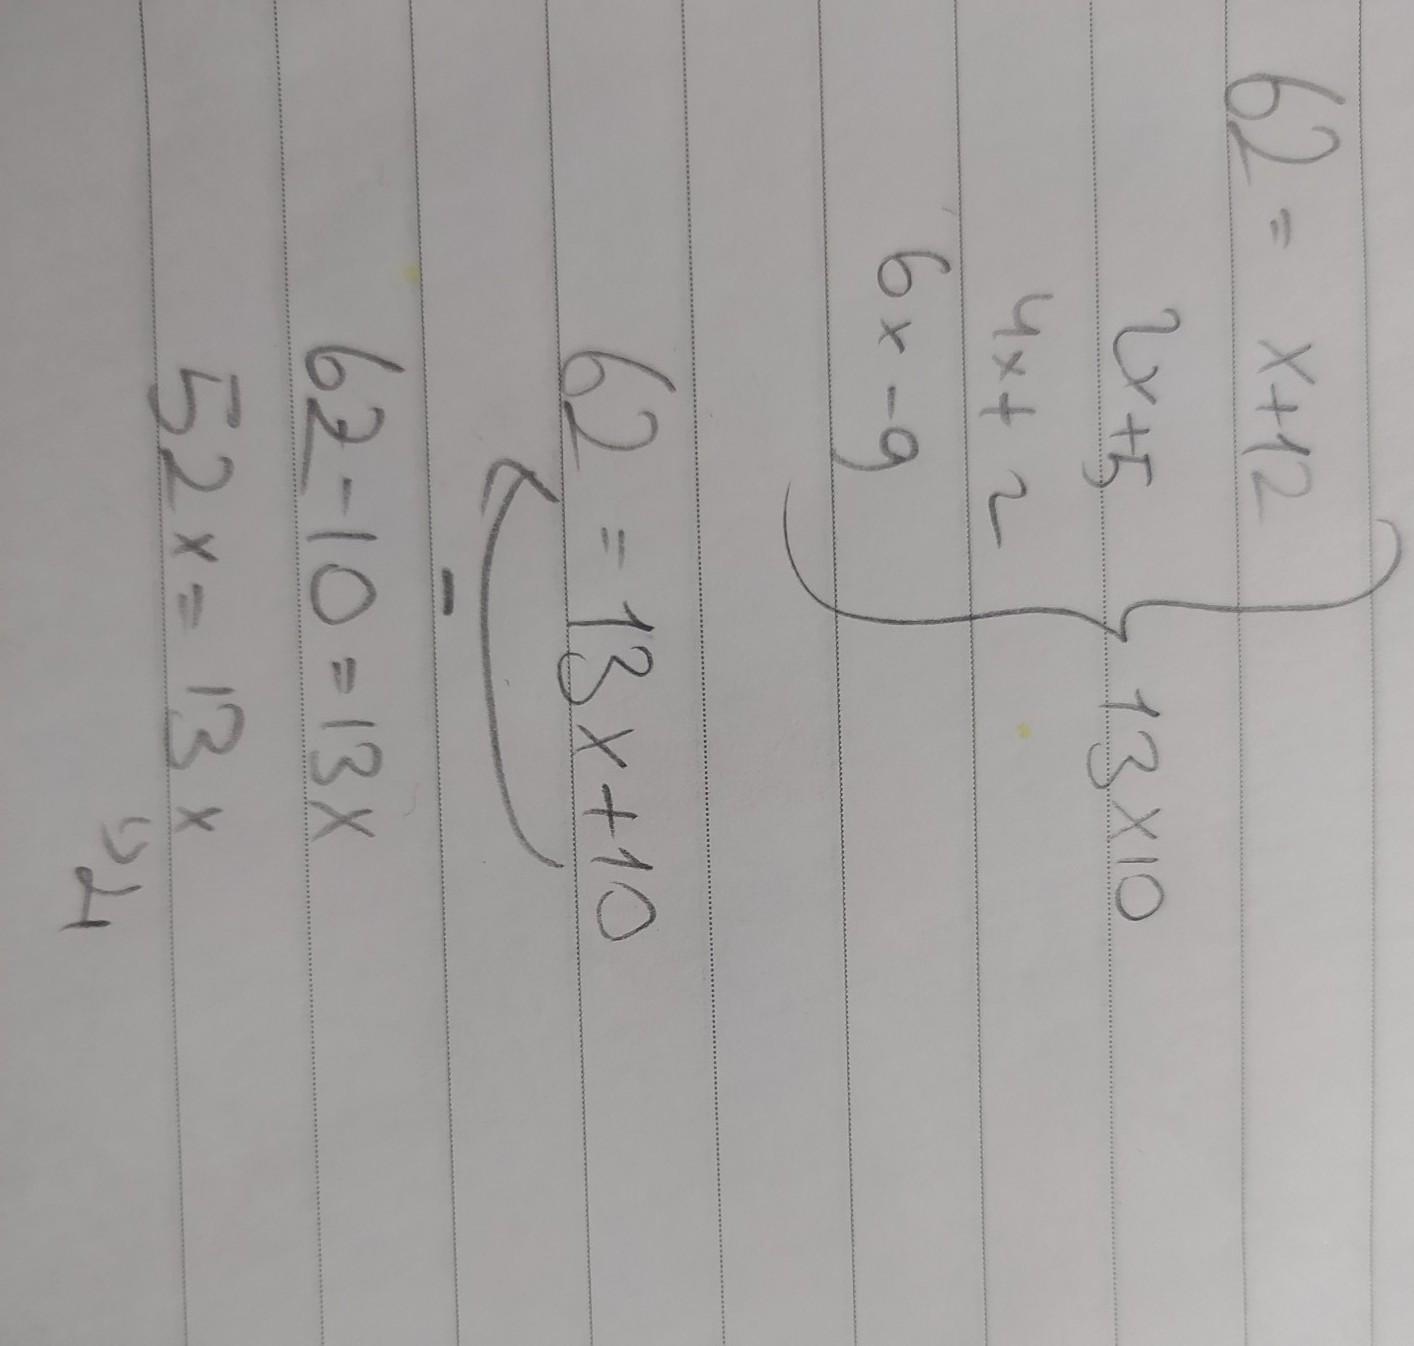 62 = x+12
2x+5
4x+2
6x-9
13x10
62 = 13x+10
-
62-10=13x
52x=13x
4